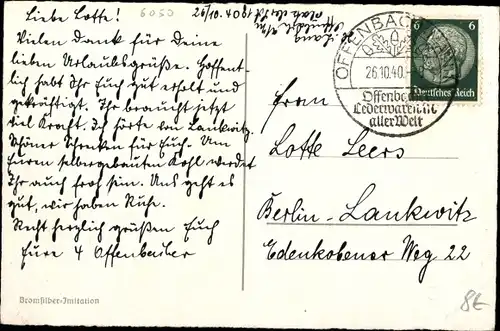 Liebe Lotte!
Vielen Dank für Deine
lieben Urlaubsgrüße. Hoffent-
lich habt Ihr Euch gut erholt und
gekräftigt. Ihr braucht jetzt
viel Kraft. Ich hörte von Lankwitz.
Schöner Schrecken für Euch. Um
Euren selbergebauten Kohl werdet
Ihr auch froh sein. Uns geht es
gut, wir haben Ruhe.
Recht herzlich grüßen Euch
Eure 4 Offenbacher
Bromsilber-Imitation
6050
OFFENBACH
26.10.40
Offenbacher
Lederwaren in
aller Welt
6
Deutsches Reich
Frau
Lotte Leers
Berlin-Lankwitz
Edenkobener Weg 22
8€